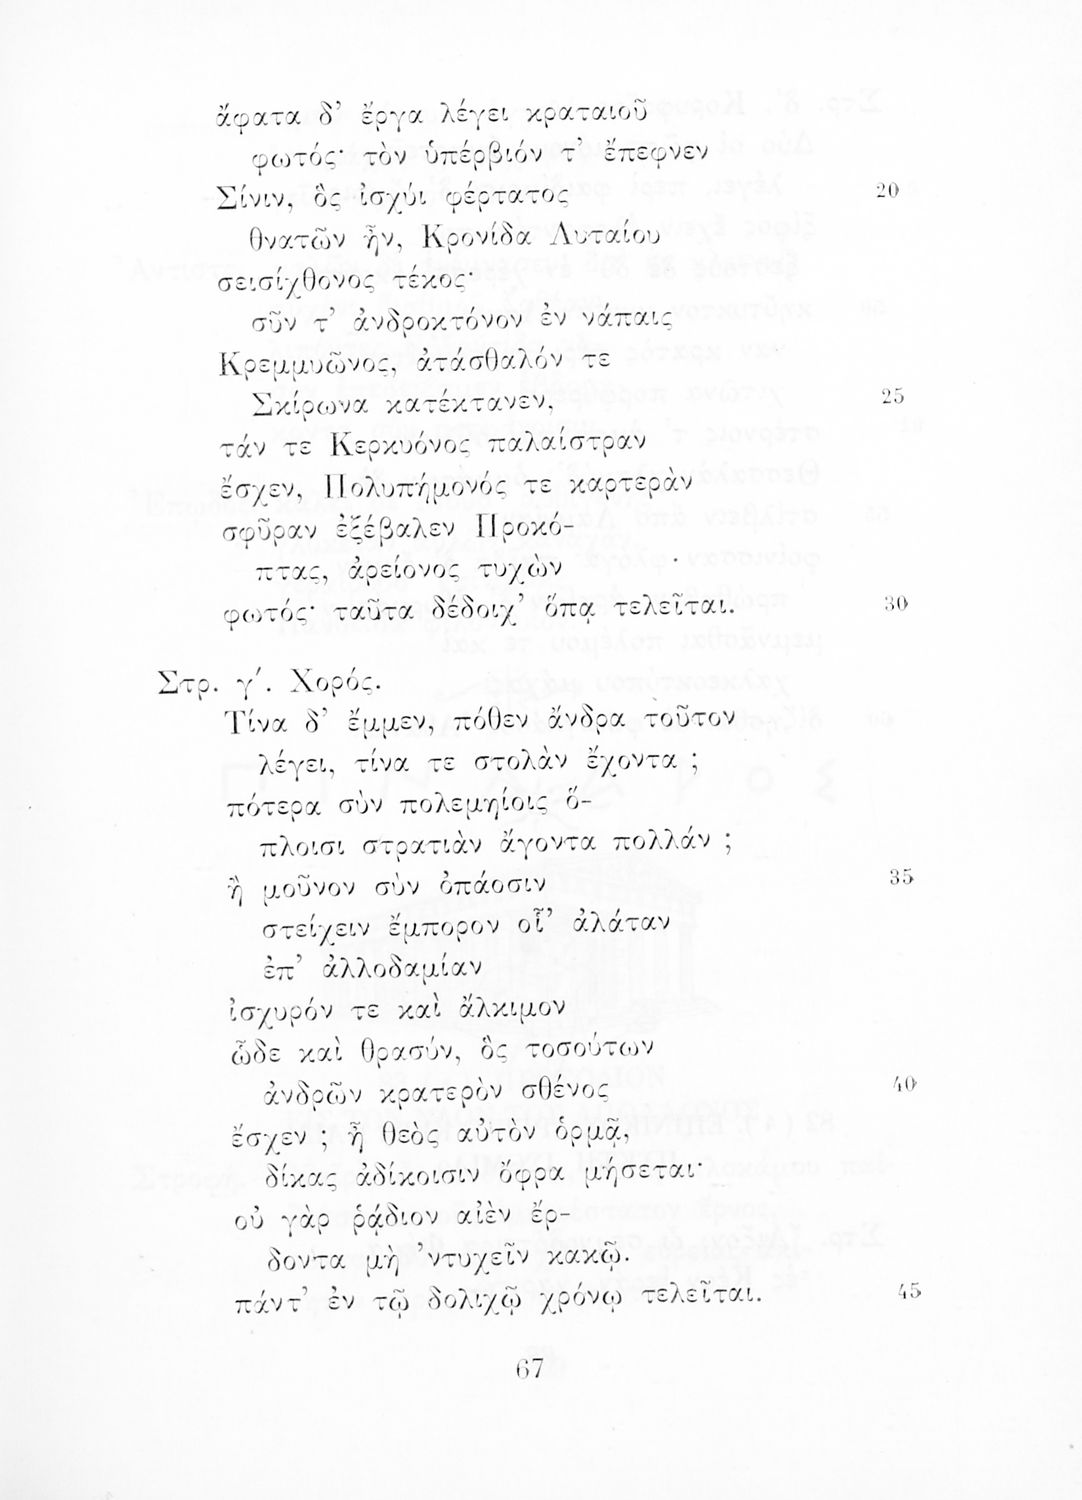 ἄφατα δ’ ἔργα λέγει κραταιοῦ
φωτός· τὸν ὑπέρβιόν τ’ ἔπεφνεν
Σίνιν, ὃς ἰσχύι φέρτατος 20
θνατῶν ἦν, Κρονίδα Λυταίου
σεισίχθονος τέκος·
σῦν τ’ ἀνδροκτόνον ἐν νάπαις
Κρεμμυῶνος, ἀτάσθαλόν τε
Σκίρωνα κατέκτανεν, 25
τάν τε Κερκυόνος παλαίστραν
ἔσχεν, Πολυπήμονός τε καρτερὰν
σφῦραν ἐξέβαλεν Προκό-
πτας, ἀρείονος τυχὼν
φωτός· ταῦτα δέδοιχ’ ὅπᾳ τελεῖται. 30
Στρ. γ΄. Χορός.
Τίνα δ’ ἔμμεν, πόθεν ἄνδρα τοῦτον
λέγει, τίνα τε στολὰν ἔχοντα ;
πότερα σὺν πολεμηίοις ὅ-
πλοισι στρατιὰν ἄγοντα πολλάν ;
ἢ μοῦνον σὺν ὀπάοσιν 35
στείχειν ἔμπορον οἷ’ ἀλάταν
ἐπ’ ἀλλοδαμίαν
ἰσχυρόν τε καὶ ἄλκιμον
ὧδε καὶ θρασύν, ὃς τοσούτων
ἀνδρῶν κρατερὸν σθένος 40
ἔσχεν ; ἦ θεὸς αὐτὸν ὁρμᾷ,
δίκας ἀδίκοισιν ὄφρα μήσεται·
οὐ γὰρ ῥᾴδιον αἰὲν ἔρ-
δοντα μὴ ’ντυχεῖν κακῷ.
πάντ’ ἐν τῷ δολιχῷ χρόνῳ τελεῖται. 45
67